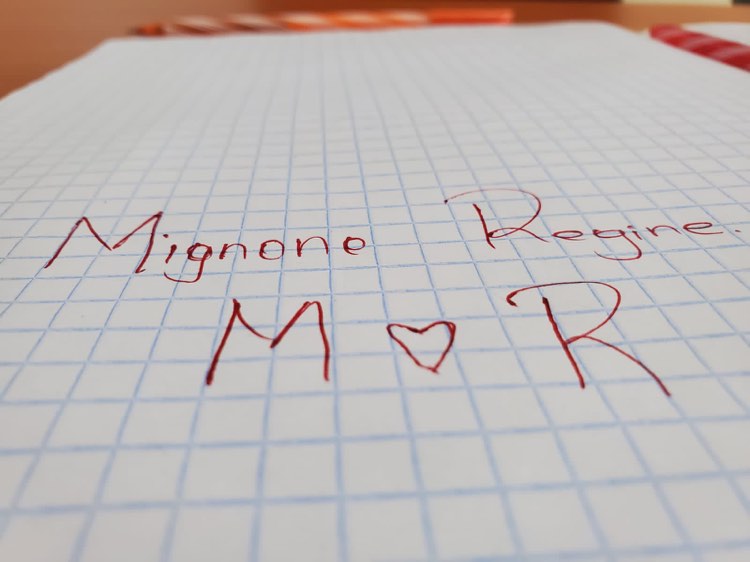 Mignone Regine.
M ♡ R